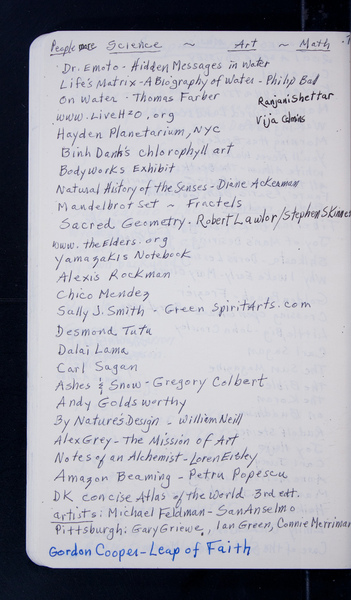 People more Science ~ Art ~ Math
Dr. Emoto - Hidden Messages in Water
Life's Matrix - A Biography of Water - Philip Ball
On Water - Thomas Farber
Ranjani Shettar
www.LiveH2O.org
Vija Celmins
Hayden Planetarium, NYC
Binh Danh's chlorophyll art
Bodyworks Exhibit
Natural History of the Senses - Diane Ackerman
Mandelbrot Set ~ Fractels
Sacred Geometry - Robert Lawlor/Stephen Skinner
www.theElders.org
Yamazakis Notebook
Alexis Rockman
Chico Mendez
Sally J. Smith - Green SpiritArts.com
Desmond Tutu
Dalai Lama
Carl Sagan
Ashes & Snow - Gregory Colbert
Andy Goldsworthy
By Nature's Design - William Neill
Alex Grey - The Mission of Art
Notes of an Alchemist - Loren Eisley
Amazon Beaming - Petru Popescu
DK concise Atlas of the World 3rd edt.
artists: Michael Feldman - San Anselmo
Pittsburgh: Gary Griewe, Ian Green, Connie Merriman
Gordon Cooper - Leap of Faith